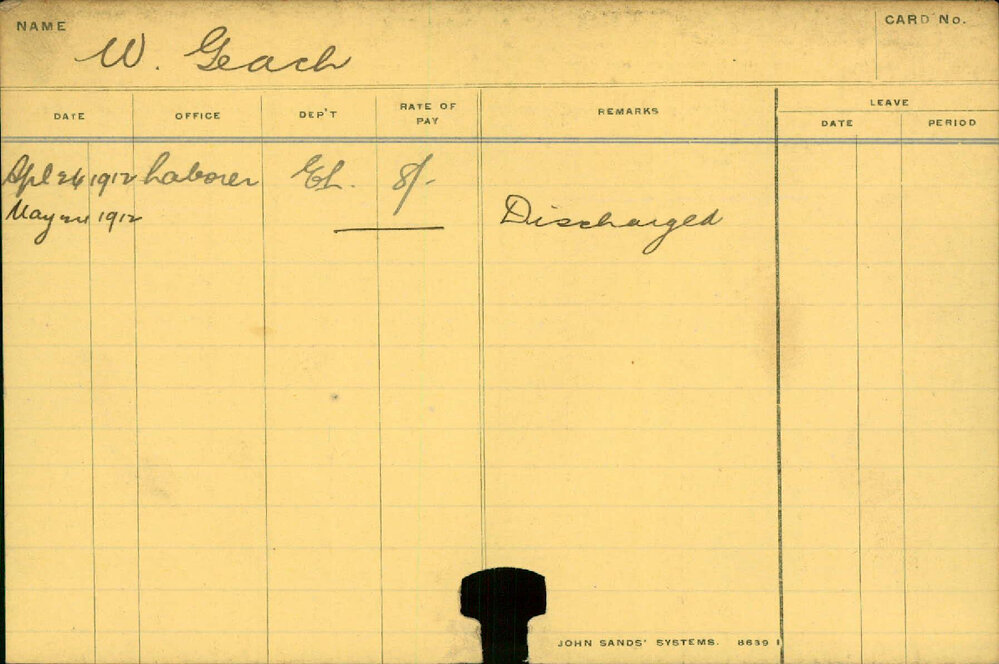 NAME W. Geach CARD No.
LEAVE
DATE OFFICE DEP'T RATE OF PAY REMARKS DATE PERIOD
Apl 24 1912 Laborer El. 8/-
May 24 1912 Discharged
JOHN SANDS' SYSTEMS. 8639